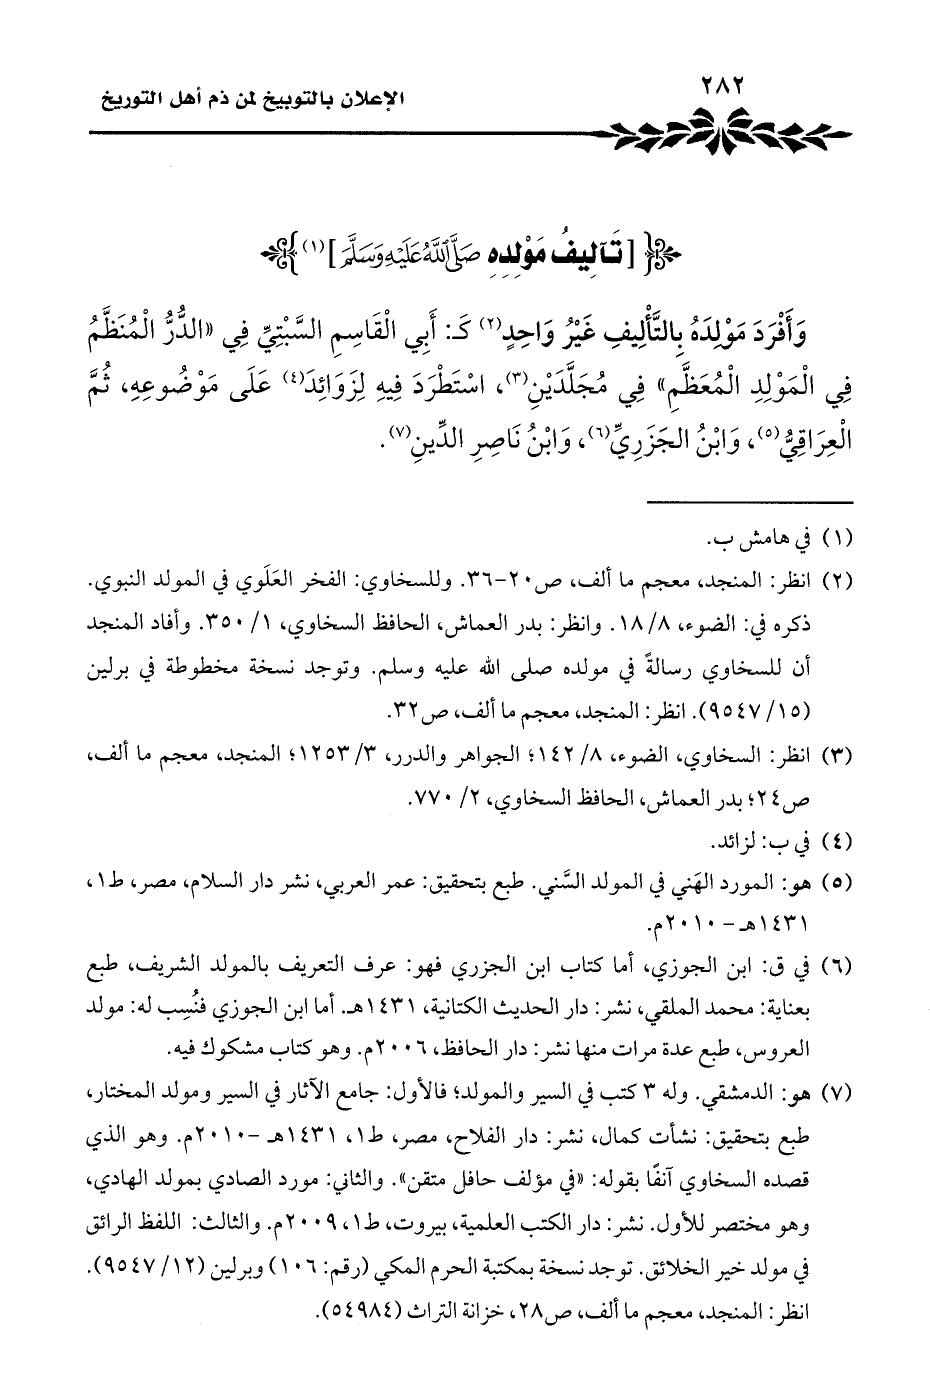 ٢٨٢
الإعلان بالتوبيخ لمن ذم أهل التوريخ
[تَآلِيفُ مَوْلِدِهِ صَلَّى اللَّهُ عَلَيْهِ وَسَلَّمَ](١)
وَأَفْرَدَ مَوْلِدَهُ بِالتَّأْلِيفِ غَيْرُ وَاحِدٍ(٢) كَـ: أَبِي الْقَاسِمِ السَّبْتِيِّ فِي «الدُّرُّ الْمُنَظَّمُ
فِي الْمَوْلِدِ الْمُعَظَّمِ» فِي مُجَلَّدَيْنِ(٣)، اسْتَطْرَدَ فِيهِ لِزَوَائِدَ(٤) عَلَى مَوْضُوعِهِ، ثُمَّ
الْعِرَاقِيُّ(٥)، وَابْنُ الجَزَرِيِّ(٦)، وَابْنُ نَاصِرِ الدِّينِ(٧).
(١) في هامش ب.
(٢) انظر: المنجد، معجم ما ألف، ص٢٠-٣٦. وللسخاوي: الفخر العَلَوي في المولد النبوي.
ذكره في: الضوء، ٨/ ١٨. وانظر: بدر العماش، الحافظ السخاوي، ١/ ٣٥٠. وأفاد المنجد
أن للسخاوي رسالةً في مولده صلى الله عليه وسلم. وتوجد نسخة مخطوطة في برلين
(١٥/ ٩٥٤٧). انظر: المنجد، معجم ما ألف، ص٣٢.
(٣) انظر: السخاوي، الضوء، ٨/ ١٤٢؛ الجواهر والدرر، ٣/ ١٢٥٣؛ المنجد، معجم ما ألف،
ص٢٤؛ بدر العماش، الحافظ السخاوي، ٢/ ٧٧٠.
(٤) في ب: لزائد.
(٥) هو: المورد الهَني في المولد السَّني. طبع بتحقيق: عمر العربي، نشر دار السلام، مصر، ط١،
١٤٣١هـ - ٢٠١٠م.
(٦) في ق: ابن الجوزي، أما كتاب ابن الجزري فهو: عرف التعريف بالمولد الشريف، طبع
بعناية: محمد الملقي، نشر: دار الحديث الكتانية، ١٤٣١هـ. أما ابن الجوزي فنُسِب له: مولد
العروس، طبع عدة مرات منها نشر: دار الحافظ، ٢٠٠٦م. وهو كتاب مشكوك فيه.
(٧) هو: الدمشقي. وله ٣ كتب في السير والمولد؛ فالأول: جامع الآثار في السير ومولد المختار،
طبع بتحقيق: نشأت كمال، نشر: دار الفلاح، مصر، ط١، ١٤٣١هـ -٢٠١٠م. وهو الذي
قصده السخاوي آنفًا بقوله: «في مؤلف حافل متقن». والثاني: مورد الصادي بمولد الهادي،
وهو مختصر للأول. نشر: دار الكتب العلمية، بيروت، ط١، ٢٠٠٩م. والثالث: اللفظ الرائق
في مولد خير الخلائق. توجد نسخة بمكتبة الحرم المكي (رقم: ١٠٦) وبرلين (١٢/ ٩٥٤٧).
انظر: المنجد، معجم ما ألف، ص٢٨، خزانة التراث (٥٤٩٨٤).